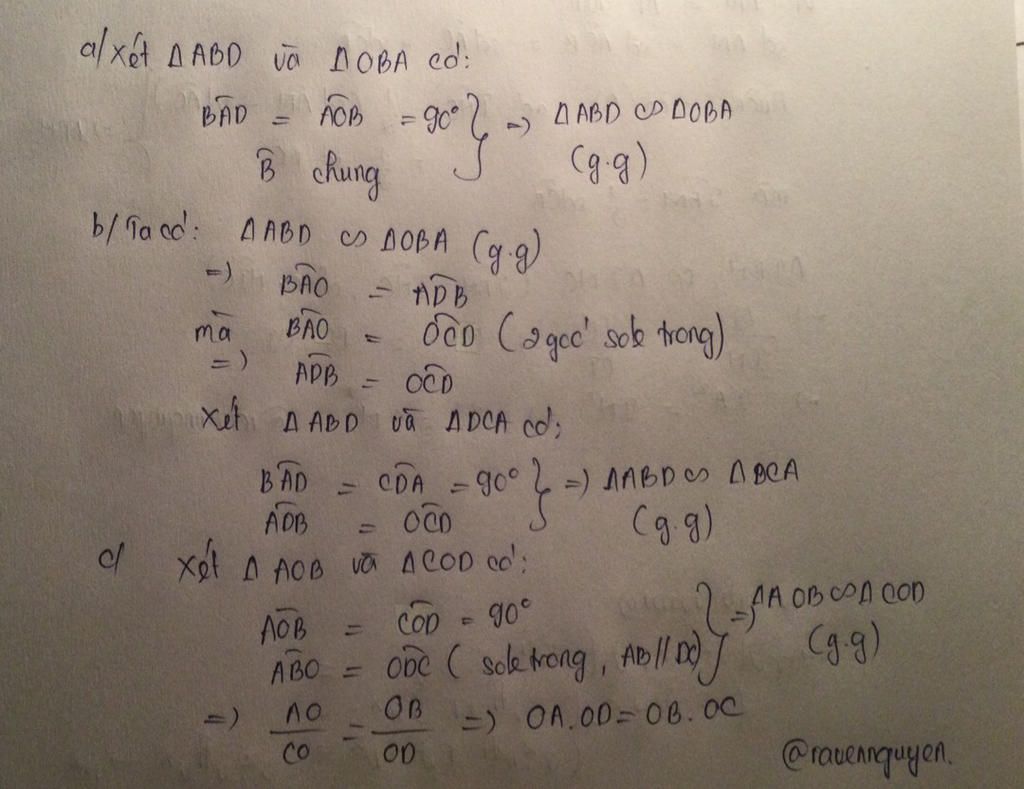 a/ Xét ΔABD và ΔOBA có:
BAD = AOB = 90° } => ΔABD ∽ ΔOBA
B chung (g.g)
b/ Ta có: ΔABD ∽ ΔOBA (g.g)
=> BAO = ADB
mà BAO = OCD (2 góc sole trong)
=> ADB = OCD
Xét ΔABD và ΔDCA có:
BAD = CDA = 90° } => ΔABD ∽ ΔDCA
ADB = OCD (g.g)
c/ Xét ΔAOB và ΔCOD có:
AOB = COD = 90° } => ΔAOB ∽ ΔCOD
ABO = ODC (sole trong, AB//DC) (g.g)
=> AO/CO = OB/OD => OA.OD = OB.OC
@ravennguyen.